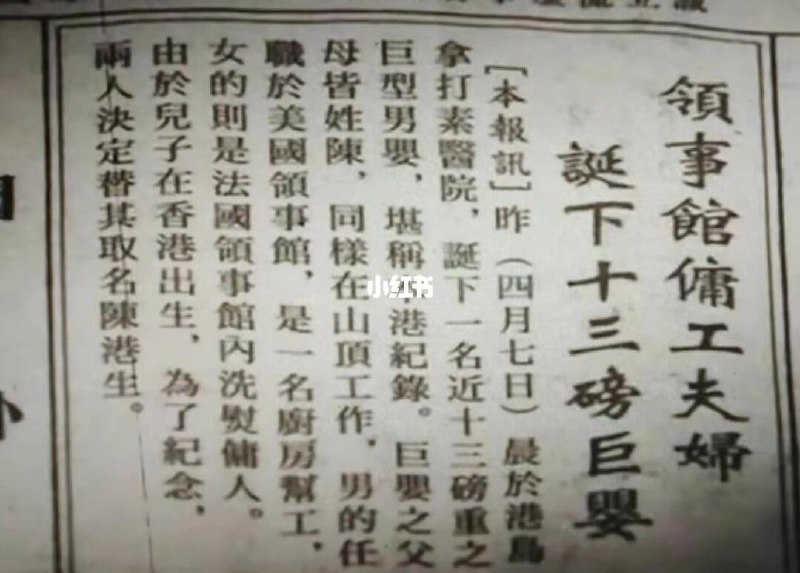 領事館傭工夫婦
誕下十三磅巨嬰
［本報訊］昨（四月七日）晨於港島
拿打素醫院，誕下一名近十三磅重之
巨型男嬰，堪稱本港紀錄。巨嬰之父
母皆姓陳，同樣在山頂工作，男的任
職於美國領事館，是一名廚房幫工，
女的則是法國領事館內洗熨傭人。
由於兒子在香港出生，為了紀念，
兩人決定替其取名陳港生。
小红书